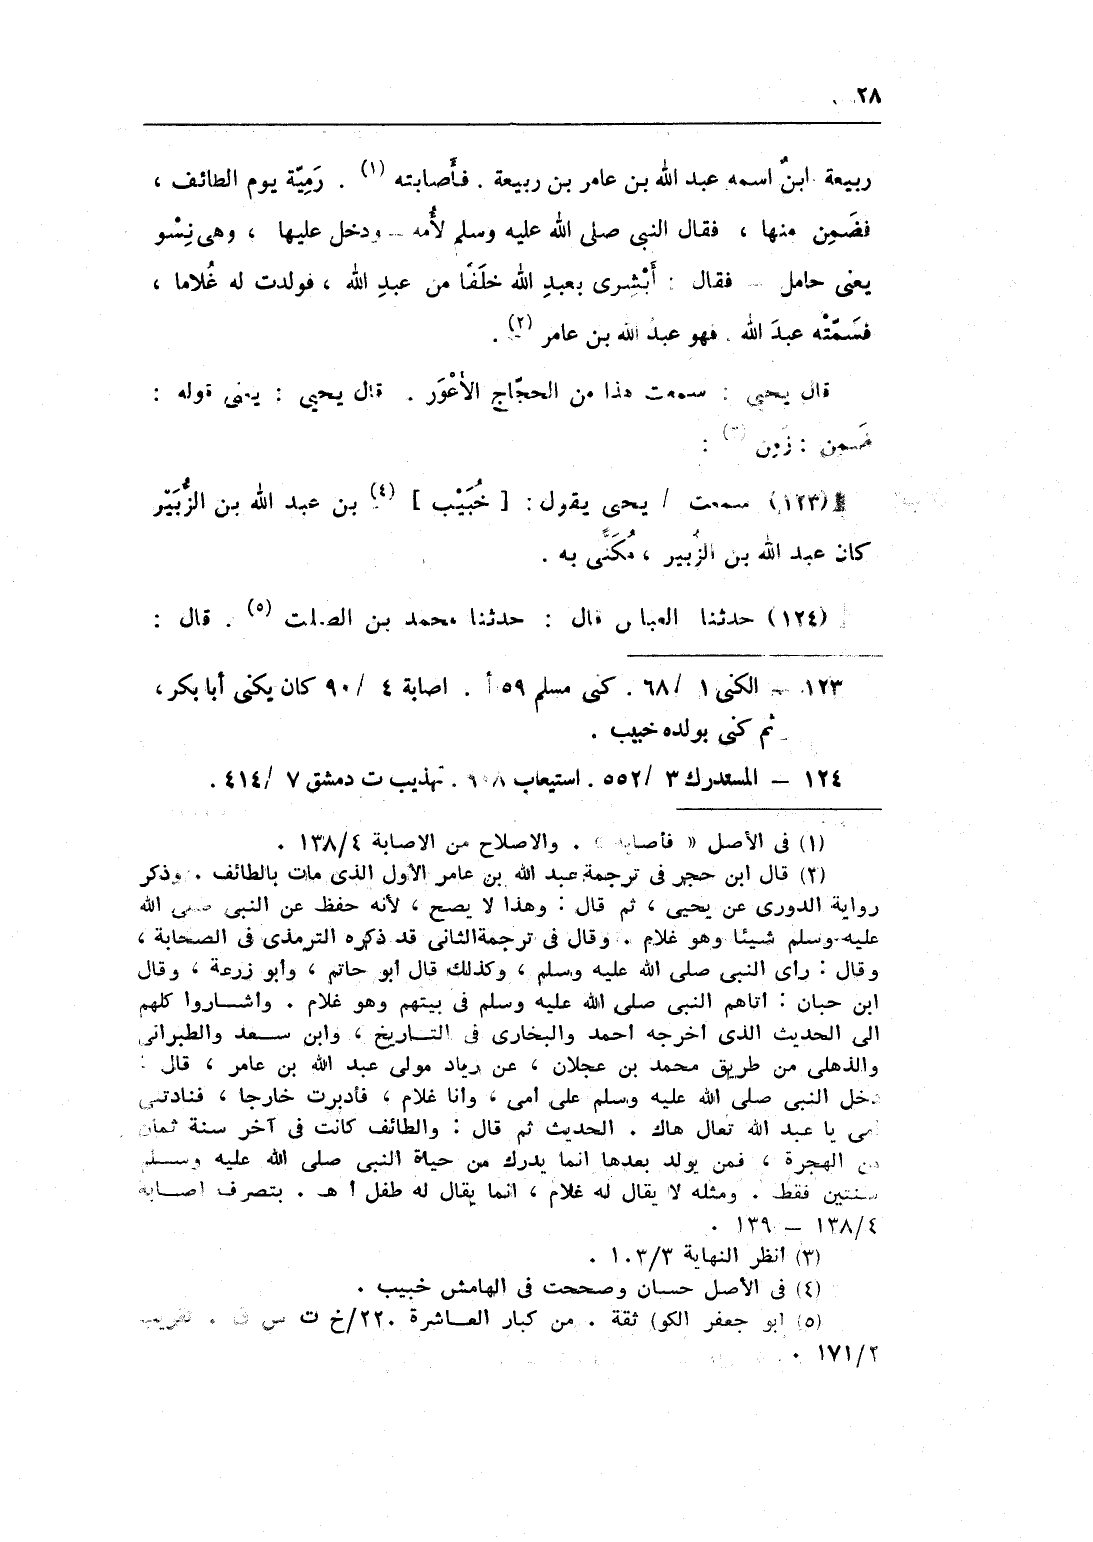 ٢٨
ربيعة ابنٌ اسمه عبد الله بن عامر بن ربيعة . فأَصابته (١) . رَمِيّة يوم الطائف ،
فضَمِن منها ، فقال النبي صلى الله عليه وسلم لأُمه ــ ودخل عليها ، وهى نِسْو
يعنى حامل ــ فقال : أَبْشِرى بعبدِ الله خلَفًا من عبدِ الله ، فولدت له غُلاما ،
فسَمّتْه عبدَ الله . فهو عبدُ الله بن عامر (٢) .
قال يحيى : سمعت هذا من الحجّاج الأَعْوَر . قال يحيى : يعنى قوله :
ضَمِن : زَمِن (٣) :
(١٢٣) سمعت / يحى يقول : [ خُبَيْب ] (٤) بن عبد الله بن الزُّبَيْر
كان عبد الله بن الزُبير ، مُكَنًّى به .
(١٢٤) حدثنا العباس قال : حدثنا محمد بن الصلت (٥) . قال :
١٢٣ ــ الكنى ١ /٦٨ . كنى مسلم ٥٩ أ . اصابة ٤ /٩٠ كان يكنى أبا بكر ،
ثم كنى بولده خبيب .
١٢٤ ــ المستدرك ٣ /٥٥٢ . استيعاب ٦٠٨ . تهذيب ت دمشق ٧ /٤١٤ .
(١) فى الأصل « فأصابه » . والاصلاح من الاصابة ١٣٨/٤ .
(٢) قال ابن حجر فى ترجمة عبد الله بن عامر الأول الذى مات بالطائف . وذكر
رواية الدورى عن يحيى ، ثم قال : وهذا لا يصح ، لأنه حفظ عن النبى صلى الله
عليه وسلم شيئا وهو غلام . وقال فى ترجمة الثانى قد ذكره الترمذى فى الصحابة ،
وقال : رأى النبى صلى الله عليه وسلم ، وكذلك قال أبو حاتم ، وأبو زرعة ، وقال
ابن حبان : أتاهم النبى صلى الله عليه وسلم فى بيتهم وهو غلام . وأشاروا كلهم
الى الحديث الذى أخرجه أحمد والبخارى فى التاريخ ، وابن سعد والطبرانى
والذهلى من طريق محمد بن عجلان ، عن زياد مولى عبد الله بن عامر ، قال :
دخل النبى صلى الله عليه وسلم على أمى ، وأنا غلام ، فأدبرت خارجا ، فنادتنى
أمى يا عبد الله تعال هاك . الحديث ثم قال : والطائف كانت فى آخر سنة ثمان
من الهجرة ، فمن يولد بعدها انما يدرك من حياة النبى صلى الله عليه وسلم
سنتين فقط . ومثله لا يقال له غلام ، انما يقال له طفل أ هـ . بتصرف اصابة
١٣٨/٤ ــ ١٣٩ .
(٣) انظر النهاية ١٠٣/٣ .
(٤) فى الأصل حسان وصححت فى الهامش خبيب .
(٥) أبو جعفر الكو) ثقة . من كبار العاشرة ٢٢٠/خ ت س ق . تقريب
١٧١/٢ .